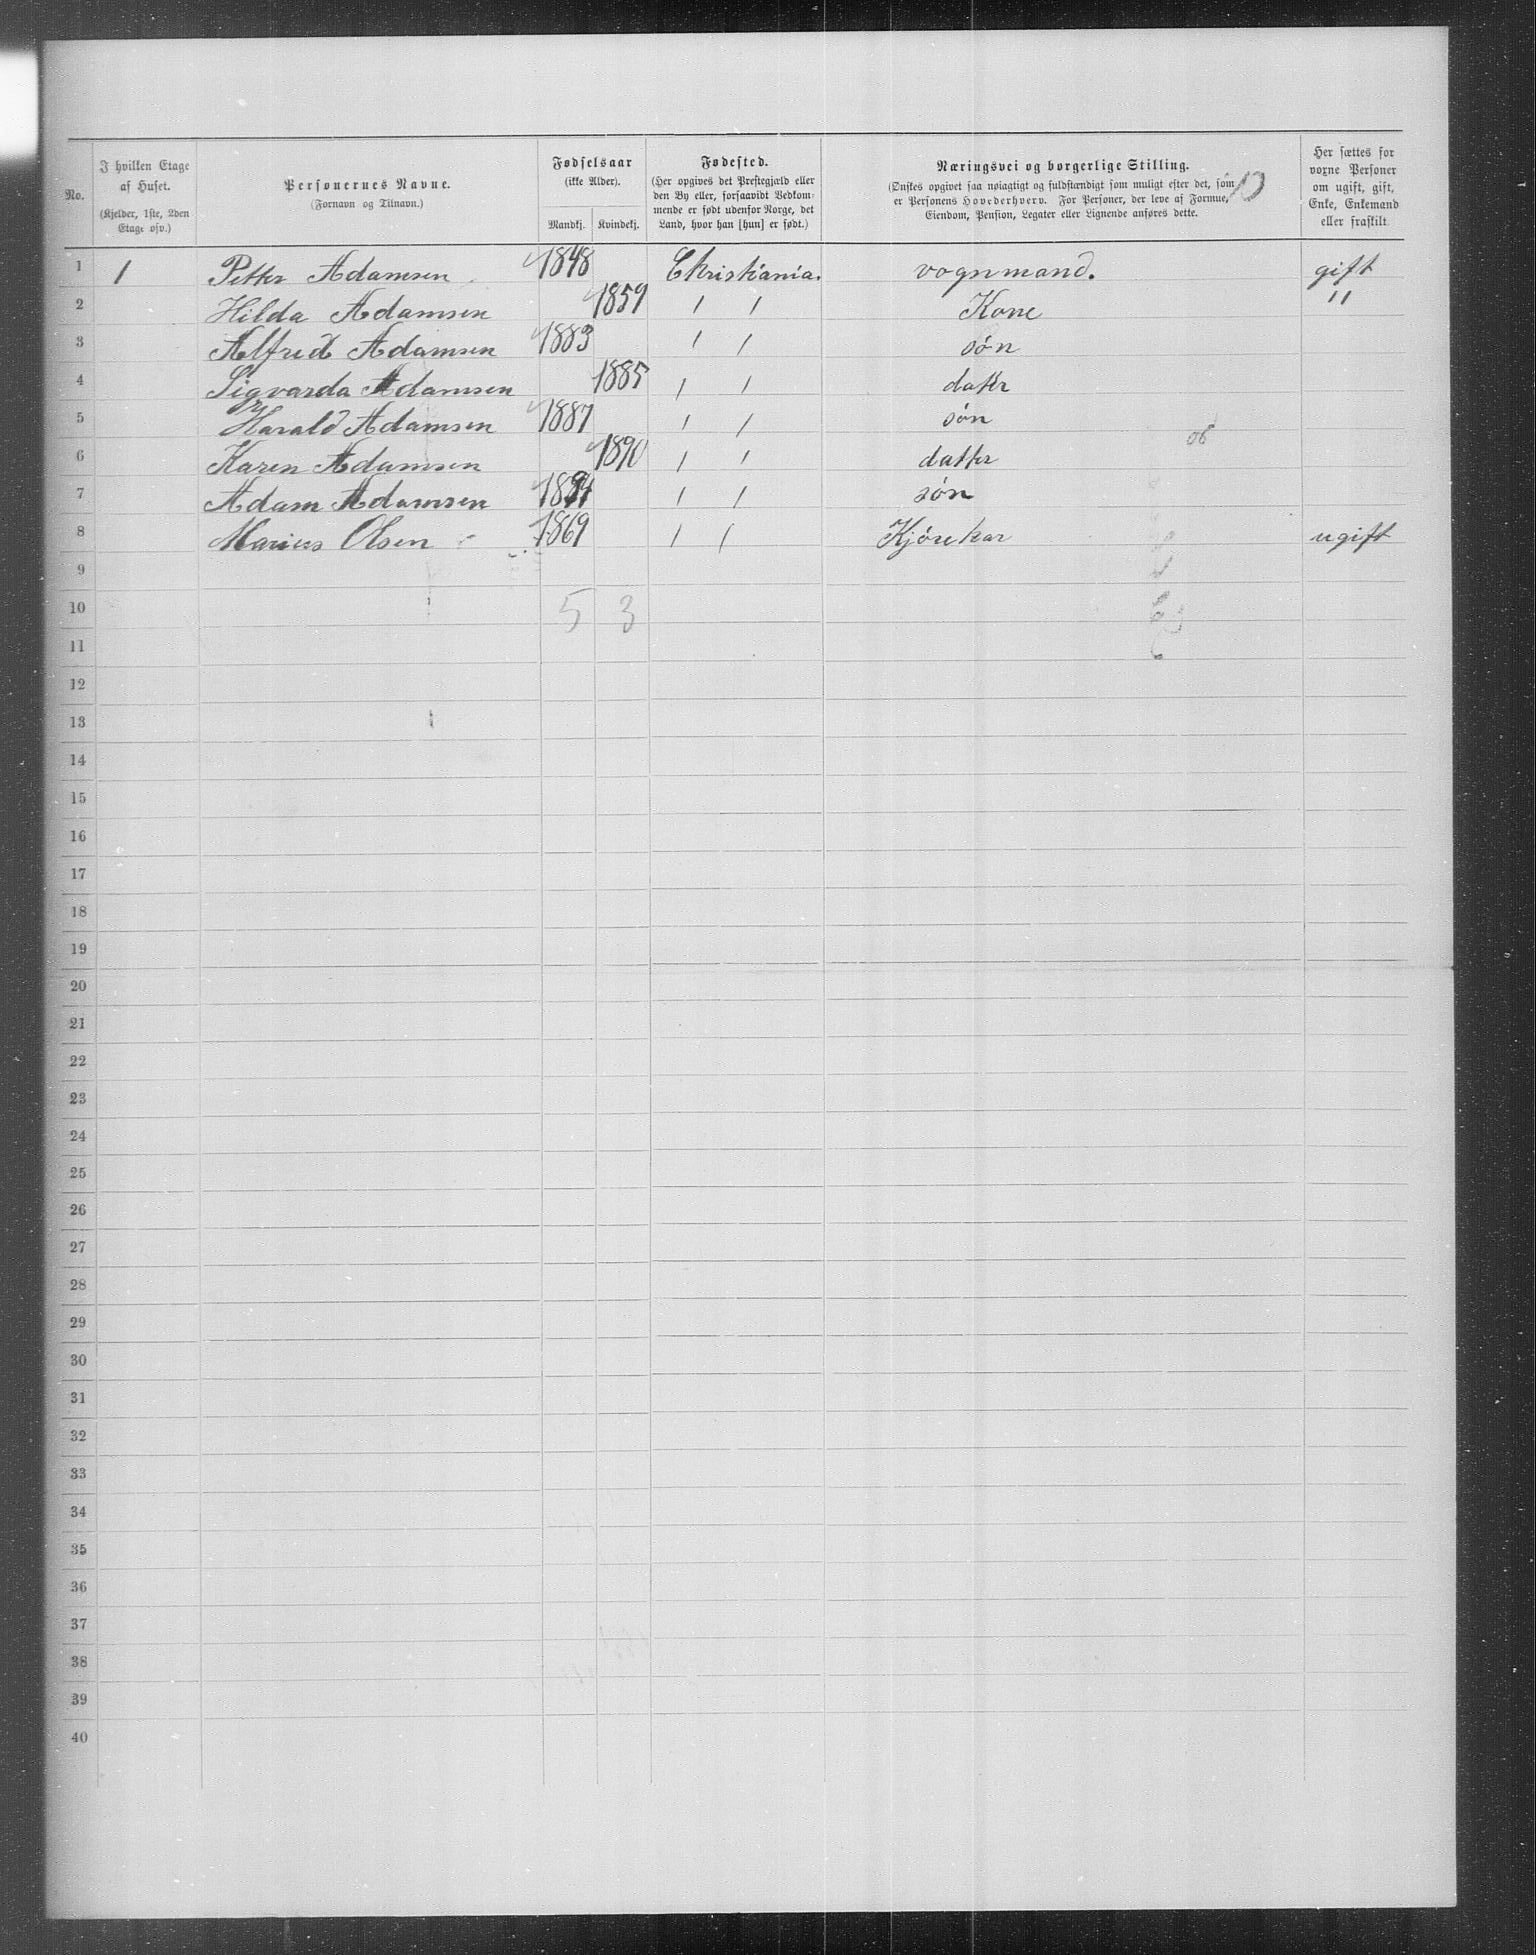 No.
I hvilken Etage af Huset.
(Kjelder, 1ste, 2den Etage osv.)
Personernes Navne.
(Fornavn og Tilnavn.)
Fødselsaar
(ikke Alder).
Mandkj. Kvindekj.
Fødested.
(Her opgives det Præstegjæld eller
den By eller, forsaavidt Vedkom-
mende er født udenfor Norge, det
Land, hvor han [hun] er født.)
Næringsvei og borgerlige Stilling.
(Ønskes opgivet saa nøiagtigt og fuldstændigt som muligt efter det, som
er Personens Hovederhverv. For Personer, der leve af Formue,
Eiendom, Pension, Legater eller Lignende anføres dette.
Her sættes for
voxne Personer
om ugift, gift,
Enke, Enkemand
eller fraskilt.
1 1 Petter Adamsen 1848 Christiania. vognmand. gift
2 Hilda Adamsen 1859 / / Kone "
3 Alfred Adamsen 1883 / / søn
4 Sigvarda Adamsen 1885 / / datter
5 Harald Adamsen 1887 / / søn
6 Karen Adamsen 1890 / / datter
7 Adam Adamsen 1894 / / søn
8 Marius Olsen 1869 / / Kjørekar ugift
9
10 5 3
11
12
13
14
15
16
17
18
19
20
21
22
23
24
25
26
27
28
29
30
31
32
33
34
35
36
37
38
39
40